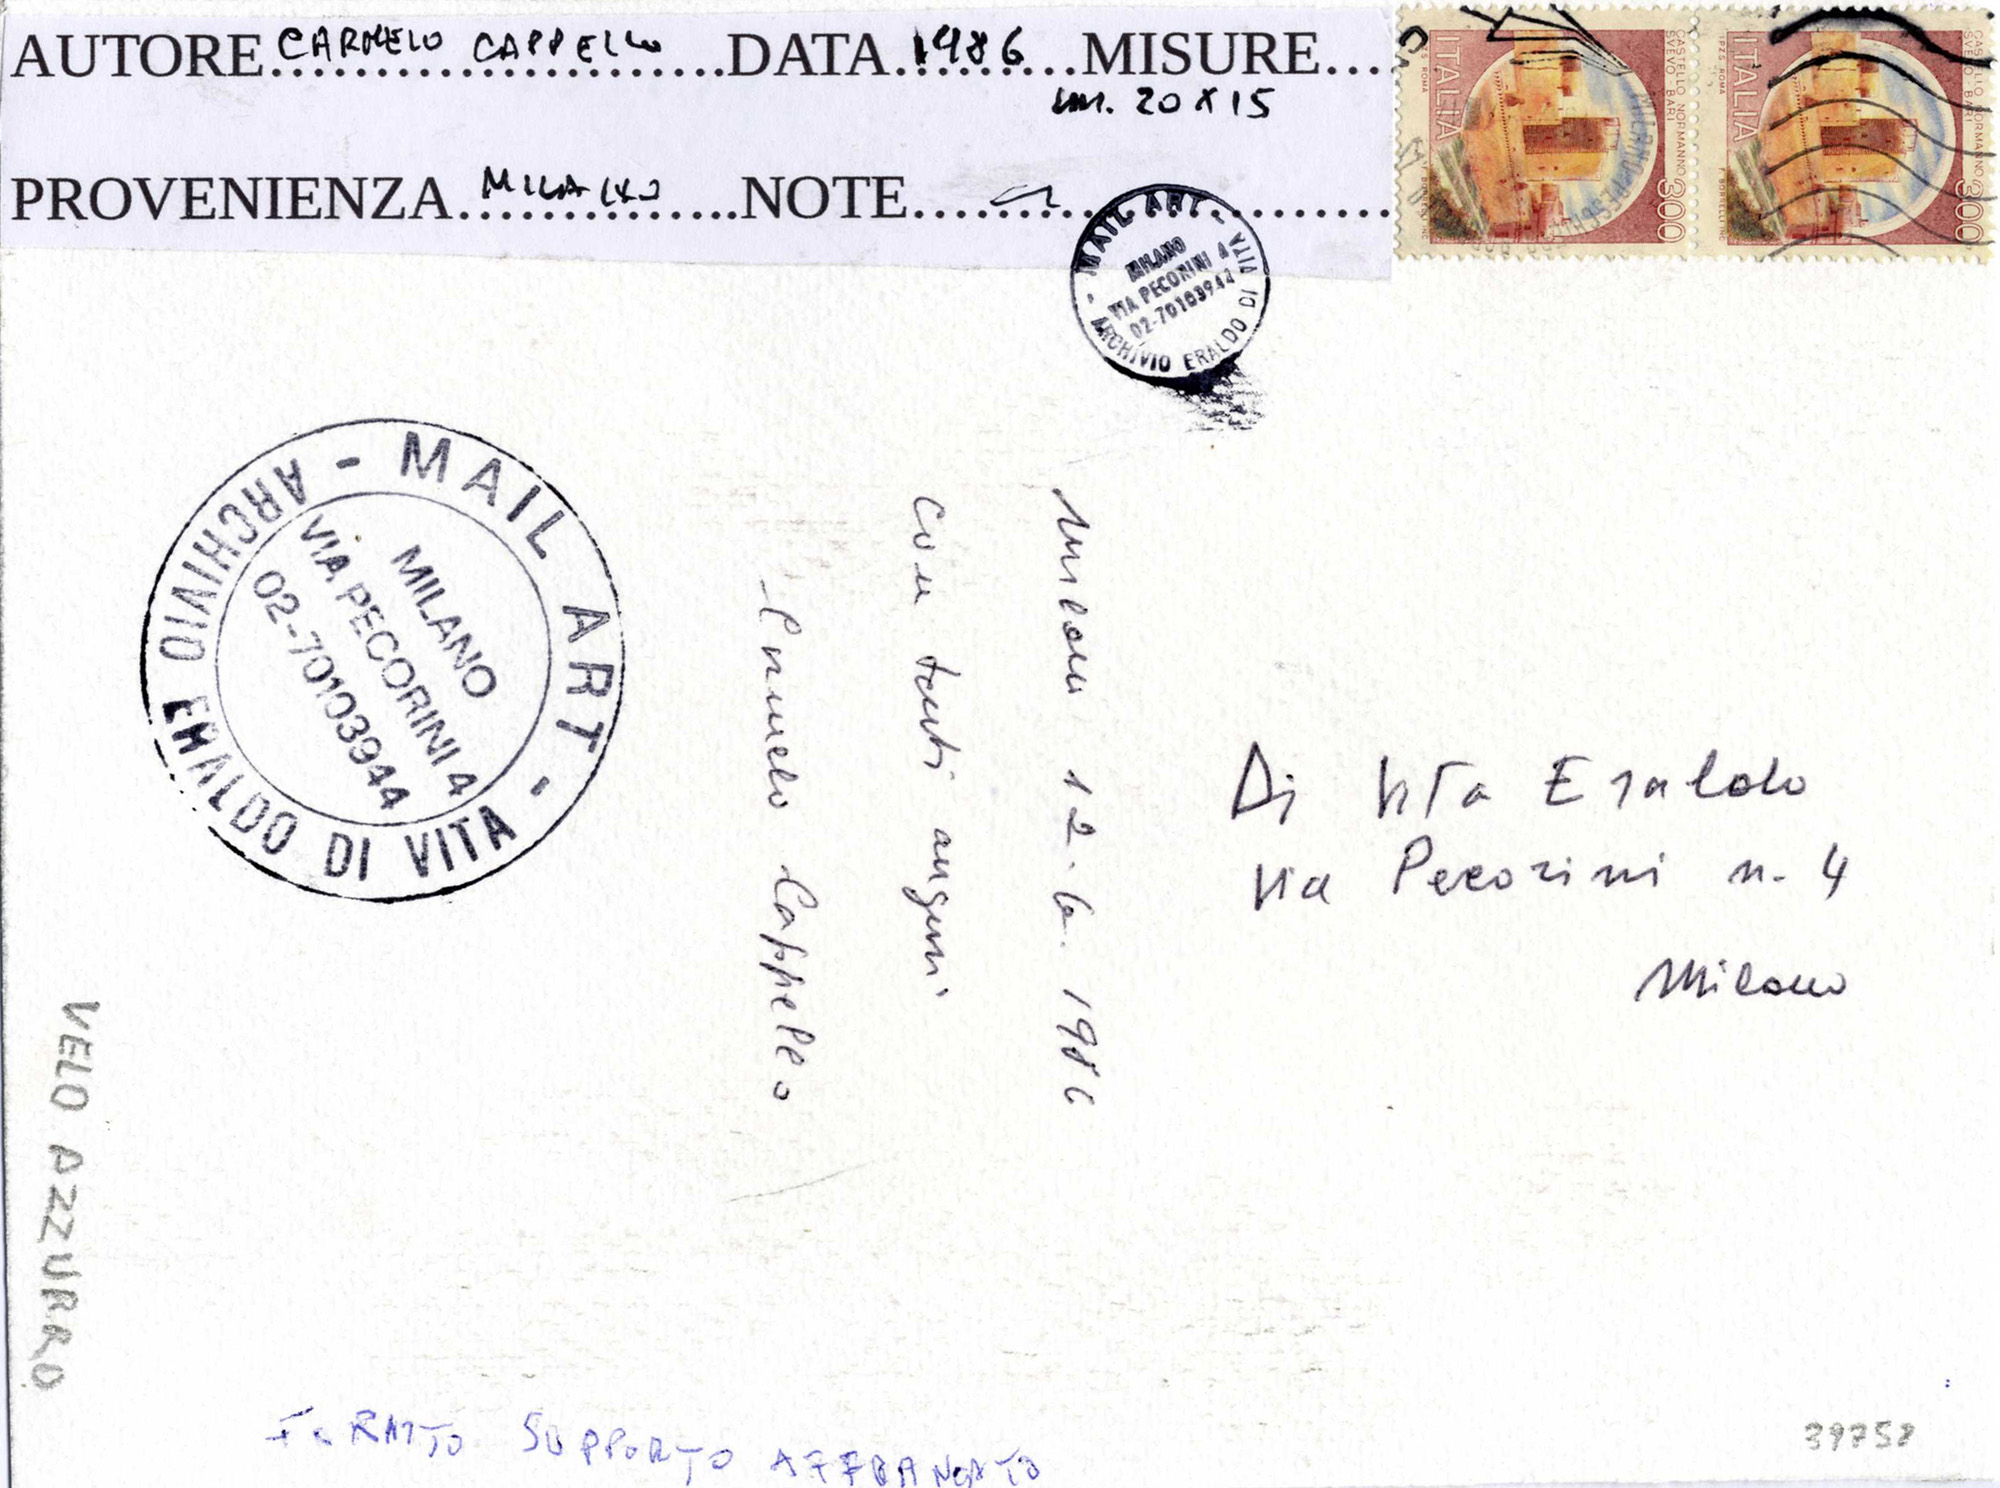 AUTORE CARMELO CAPPELLO DATA 1986 MISURE
cm. 20 X 15
PROVENIENZA MILANO NOTE
ITALIA
CASTELLO NORMANNO
SVEVO BARI
300
I.P.Z.S. ROMA
ITALIA
CASTELLO NORMANNO
SVEVO BARI
300
I.P.Z.S. ROMA
- MAIL ART -
ARCHIVIO ERALDO DI VITA
MILANO
VIA PECORINI 4
02-70103944
- MAIL ART -
ARCHIVIO ERALDO DI VITA
MILANO
VIA PECORINI 4
02-70103944
Milano 12.6.1986
Con tanti auguri
Carmelo Cappello
Di Vita Eraldo
Via Pecorini n. 4
Milano
VELO AZZURRO
FORMATO SUPPORTO AFFRANCATO
39758